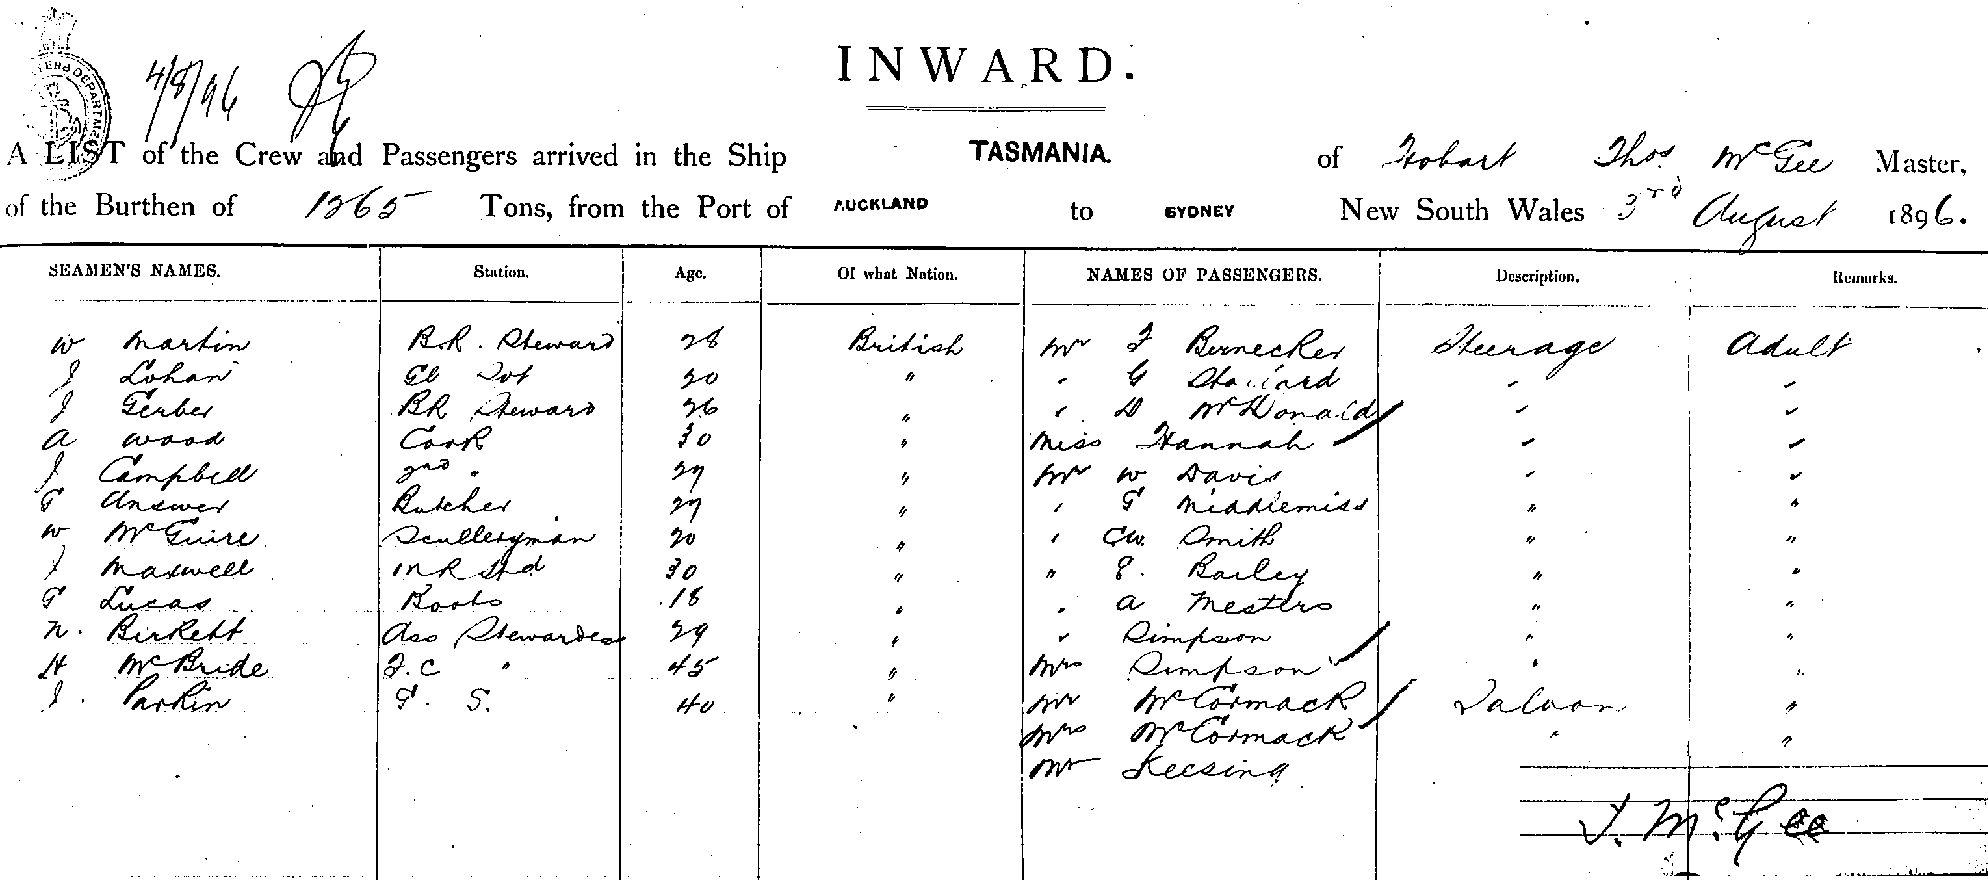 4/8/96
INWARD.
A LIST of the Crew and Passengers arrived in the Ship TASMANIA. of Hobart Thos. McGee Master,
of the Burthen of 1265 Tons, from the Port of AUCKLAND to SYDNEY New South Wales 3rd August 1896.
SEAMEN'S NAMES. Station. Age. Of what Nation. NAMES OF PASSENGERS. Description. Remarks.
W Martin B.R. Steward 28 British Mr F Bernecker Steerage Adult
J Lohan 20 " " G " "
J Gerber BR Steward 26 " " D McDonald " "
A Wood Cook 30 " Miss Hannah " "
J Campbell 2nd " 29 " Mr W Davis " "
G Answer Butcher 29 " " G Middlemiss " "
W McGuire Sculleryman 20 " " CW. Smith " "
J Maxwell 30 " " E. Bailey " "
G Lucas Boots 18 " " A Mesters " "
N. Birkett Ass Stewardess 29 " " Simpson " "
H McBride F.C " 45 " Mrs Simpson " "
J. Parkin G. S. 40 " Mr McCormack Saloon "
Mrs McCormack " "
Mr Keesing
T. McGee